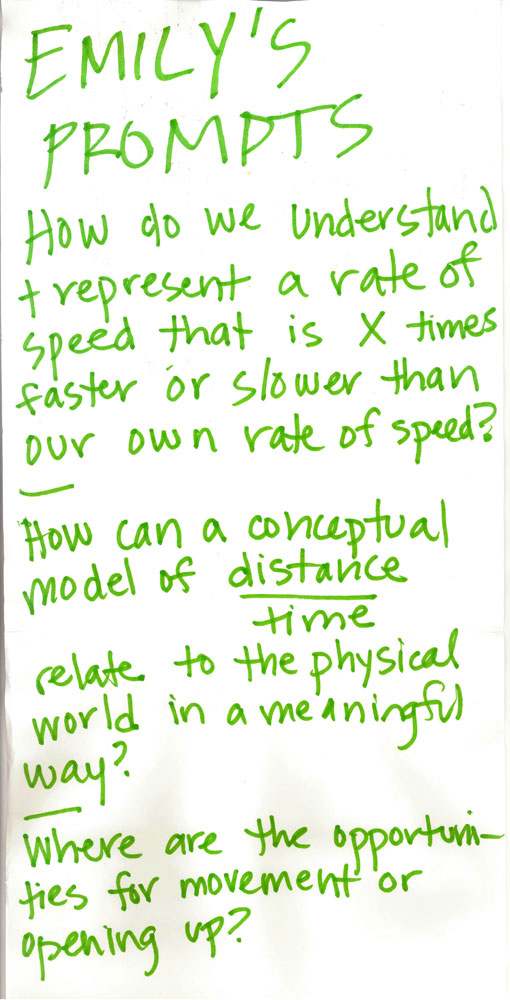 EMILY'S
PROMPTS
How do we understand
+ represent a rate of
speed that is X times
faster or slower than
our own rate of speed?
—
How can a conceptual
model of distance
time
relate to the physical
world in a meaningful
way?
—
Where are the opportuni-
ties for movement or
opening up?